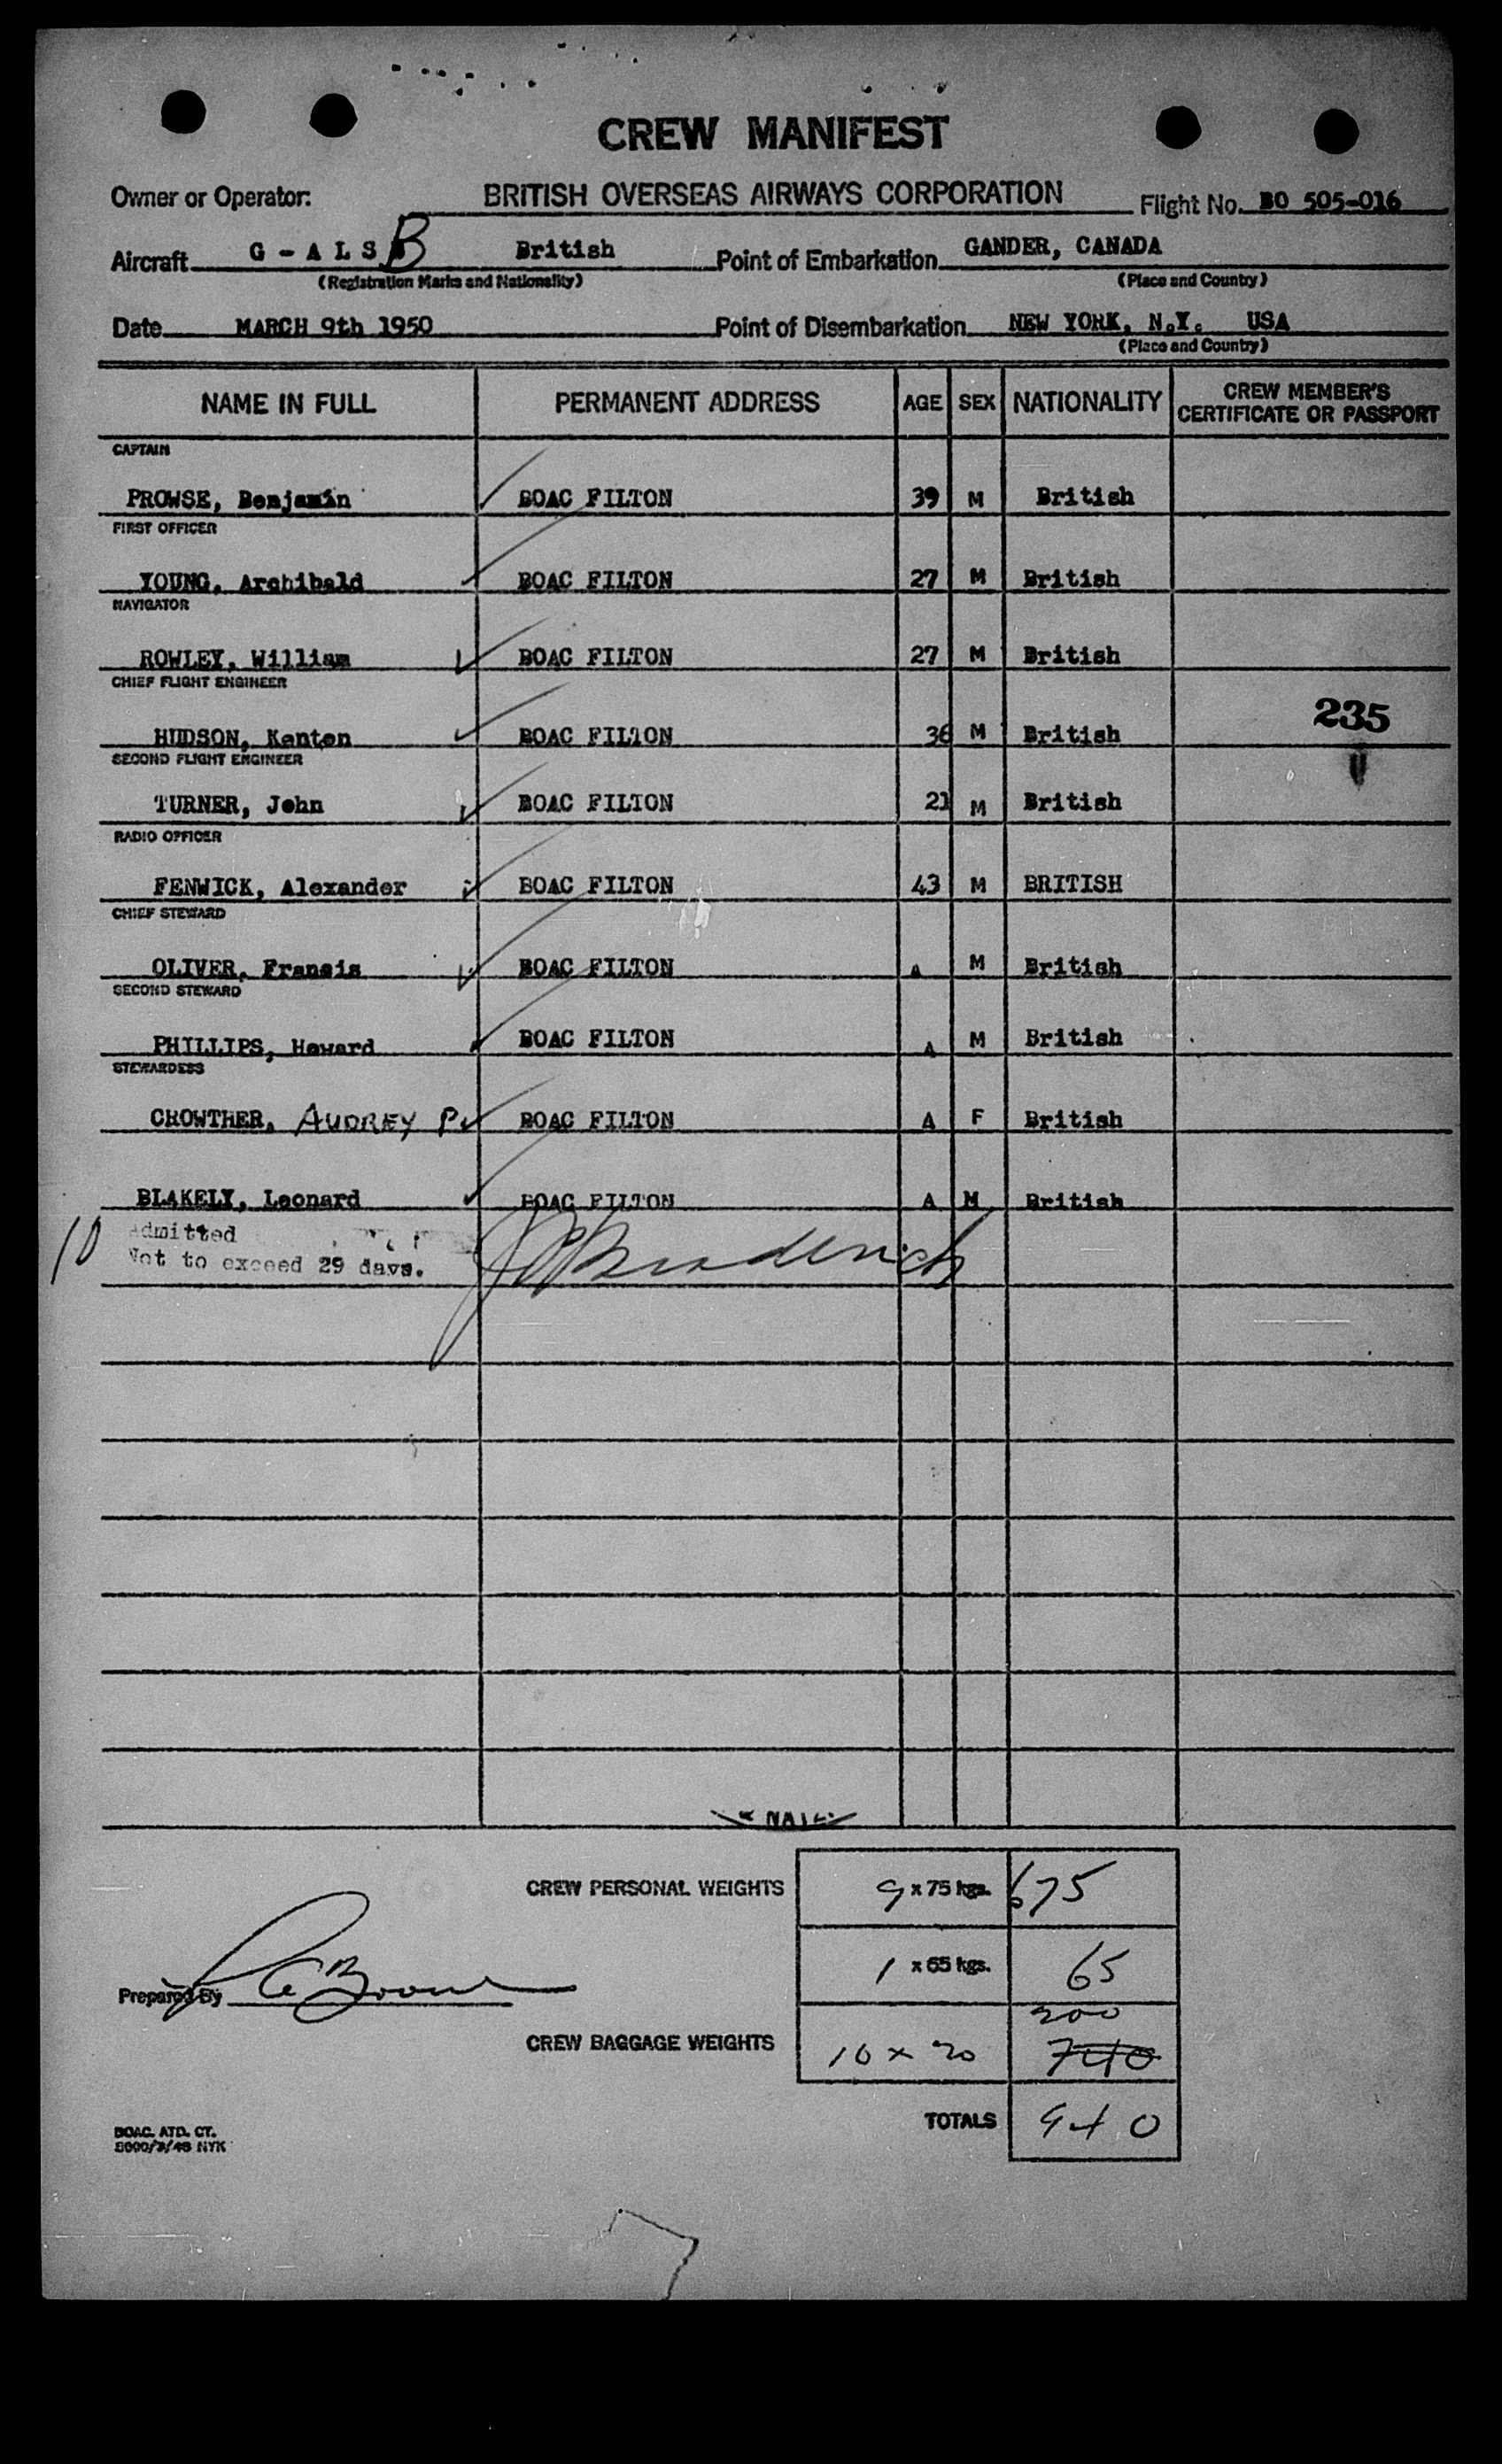 CREW MANIFEST
Owner or Operator: BRITISH OVERSEAS AIRWAYS CORPORATION Flight No. BO 505-016
Aircraft G - A L S B British Point of Embarkation GANDER, CANADA
(Registration Marks and Nationality) (Place and Country)
Date MARCH 9th 1950 Point of Disembarkation NEW YORK, N.Y. USA
(Place and Country)
NAME IN FULL PERMANENT ADDRESS AGE SEX NATIONALITY CREW MEMBER'S CERTIFICATE OR PASSPORT
CAPTAIN
PROWSE, Benjamin BOAC FILTON 39 M British
FIRST OFFICER
YOUNG, Archibald BOAC FILTON 27 M British
NAVIGATOR
ROWLEY, William BOAC FILTON 27 M British
CHIEF FLIGHT ENGINEER
235
HUDSON, Kenton BOAC FILTON 36 M British
SECOND FLIGHT ENGINEER
TURNER, John BOAC FILTON 21 M British
RADIO OFFICER
FENWICK, Alexander BOAC FILTON 43 M BRITISH
CHIEF STEWARD
OLIVER, Francis BOAC FILTON A M British
SECOND STEWARD
PHILLIPS, Howard BOAC FILTON A M British
STEWARDESS
CROWTHER, AUDREY P. BOAC FILTON A F British
BLAKELY, Leonard BOAC FILTON A M British
10 Admitted
Not to exceed 29 days.
CREW PERSONAL WEIGHTS 9 x 75 kgs. 675
1 x 65 kgs. 65
Prepared By
200
CREW BAGGAGE WEIGHTS 10 x 20 740
TOTALS 940
BOAC. ATD. CT.